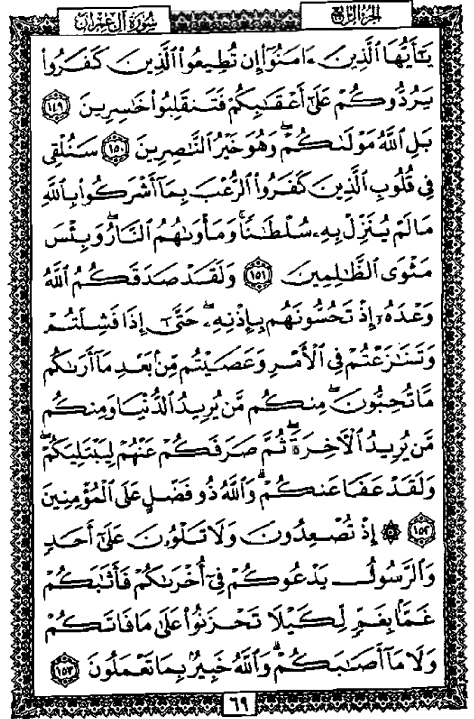 الجزء الرابع
سورة آل عمران
يَٰٓأَيُّهَا ٱلَّذِينَ ءَامَنُوٓا۟ إِن تُطِيعُوا۟ ٱلَّذِينَ كَفَرُوا۟
يَرُدُّوكُمْ عَلَىٰٓ أَعْقَٰبِكُمْ فَتَنقَلِبُوا۟ خَٰسِرِينَ ١٤٩
بَلِ ٱللَّهُ مَوْلَىٰكُمْ ۖ وَهُوَ خَيْرُ ٱلنَّٰصِرِينَ ١٥٠ سَنُلْقِى
فِى قُلُوبِ ٱلَّذِينَ كَفَرُوا۟ ٱلرُّعْبَ بِمَآ أَشْرَكُوا۟ بِٱللَّهِ
مَا لَمْ يُنَزِّلْ بِهِۦ سُلْطَٰنًا ۖ وَمَأْوَىٰهُمُ ٱلنَّارُ ۚ وَبِئْسَ
مَثْوَى ٱلظَّٰلِمِينَ ١٥١ وَلَقَدْ صَدَقَكُمُ ٱللَّهُ
وَعْدَهُۥٓ إِذْ تَحُسُّونَهُم بِإِذْنِهِۦ ۖ حَتَّىٰٓ إِذَا فَشِلْتُمْ
وَتَنَٰزَعْتُمْ فِى ٱلْأَمْرِ وَعَصَيْتُم مِّنۢ بَعْدِ مَآ أَرَىٰكُم
مَّا تُحِبُّونَ ۚ مِنكُم مَّن يُرِيدُ ٱلدُّنْيَا وَمِنكُم
مَّن يُرِيدُ ٱلْءَاخِرَةَ ۚ ثُمَّ صَرَفَكُمْ عَنْهُمْ لِيَبْتَلِيَكُمْ ۖ
وَلَقَدْ عَفَا عَنكُمْ ۗ وَٱللَّهُ ذُو فَضْلٍ عَلَى ٱلْمُؤْمِنِينَ
١٥٢ ۞ إِذْ تُصْعِدُونَ وَلَا تَلْوُۥنَ عَلَىٰٓ أَحَدٍ
وَٱلرَّسُولُ يَدْعُوكُمْ فِىٓ أُخْرَىٰكُمْ فَأَثَٰبَكُمْ
غَمًّۢا بِغَمٍّ لِّكَيْلَا تَحْزَنُوا۟ عَلَىٰ مَا فَاتَكُمْ
وَلَا مَآ أَصَٰبَكُمْ ۗ وَٱللَّهُ خَبِيرٌۢ بِمَا تَعْمَلُونَ ١٥٣
٦٩